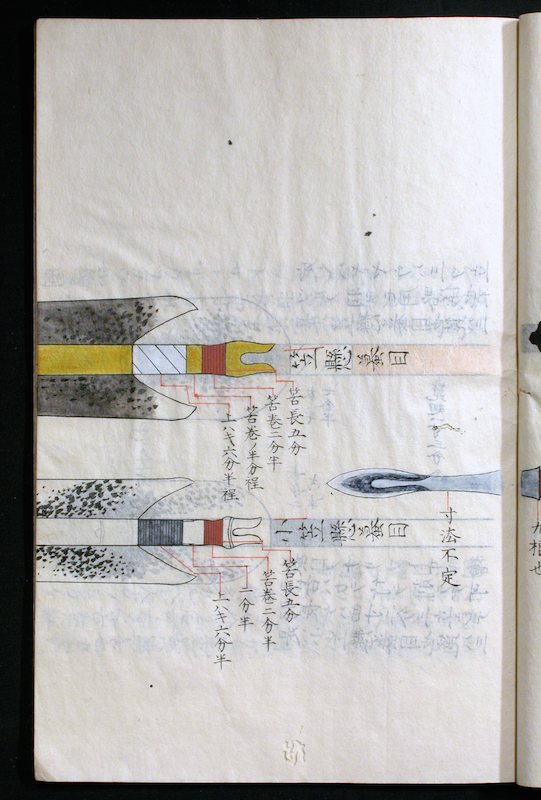 笠懸蟇目
筈長五分
筈巻二分半
筈巻ノ半分程
上ハキ六分半程
寸法不定
小笠懸蟇目
筈長五分
筈巻二分半
一分半
上ハキ六分半